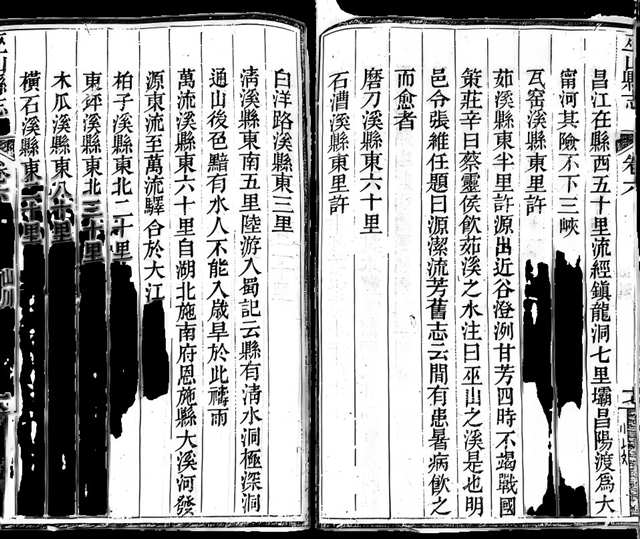 巫山縣志 卷六
昌江在縣西五十里流經鎮龍洞七里壩昌陽渡為大
甯河其險不下三峽
瓦窑溪縣東里許
茹溪縣東半里許源出近谷澄洌甘芳四時不竭戰國
策莊辛曰蔡靈侯飲茹溪之水注曰巫山之溪是也明
邑令張維任題曰源潔流芳舊志云間有患暑病飲之
而愈者
磨刀溪縣東六十里
石漕溪縣東里許
白洋路溪縣東三里
淸溪縣東南五里陸游入蜀記云縣有淸水洞極深洞
通山後邑黯有水人不能入歳旱於此禱雨
萬流溪縣東六十里自湖北施南府恩施縣大溪河發
源東流至萬流驛合於大江
柏子溪縣東北二十里
東坪溪縣東北三十里
木瓜溪縣東八十里
橫石溪縣東二十里
巫山縣志